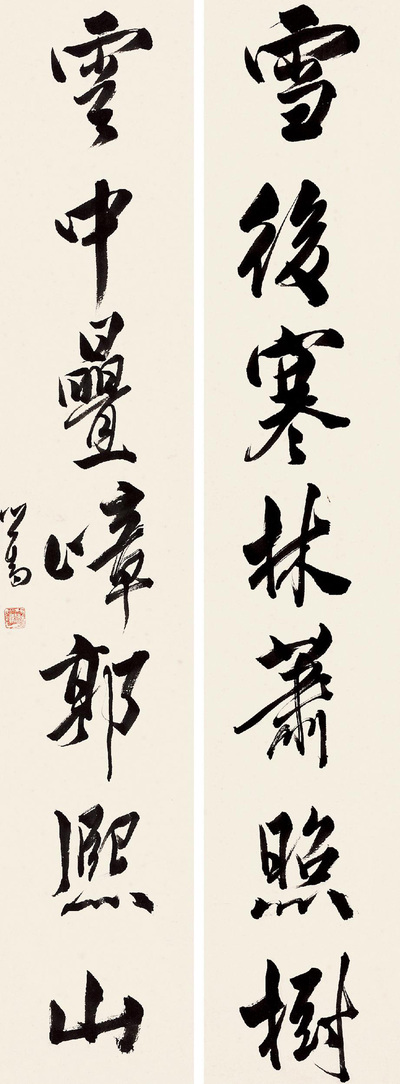 雪後寒林蕭照樹
雲中疊嶂郭熙山
心畬